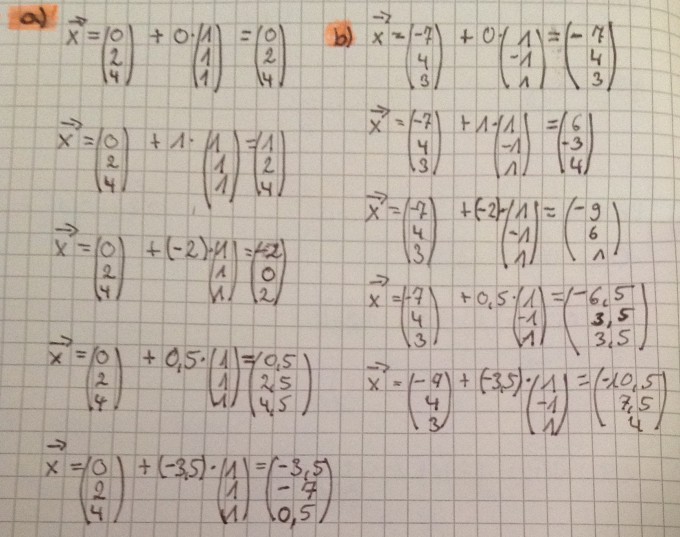 a) x⃗ = (0 2 4) + 0·(1 1 1) = (0 2 4)
x⃗ = (0 2 4) + 1·(1 1 1) = (1 2 4)
x⃗ = (0 2 4) + (-2)·(1 1 1) = (-2 0 2)
x⃗ = (0 2 4) + 0,5·(1 1 1) = (0,5 2,5 4,5)
x⃗ = (0 2 4) + (-3,5)·(1 1 1) = (-3,5 -7 0,5)
b) x⃗ = (-7 4 3) + 0·(1 -1 1) = (-7 4 3)
x⃗ = (-7 4 3) + 1·(1 -1 1) = (6 -3 4)
x⃗ = (-7 4 3) + (-2)·(1 -1 1) = (-9 6 1)
x⃗ = (-7 4 3) + 0,5·(1 -1 1) = (-6,5 3,5 3,5)
x⃗ = (-7 4 3) + (-3,5)·(1 -1 1) = (-10,5 7,5 4)